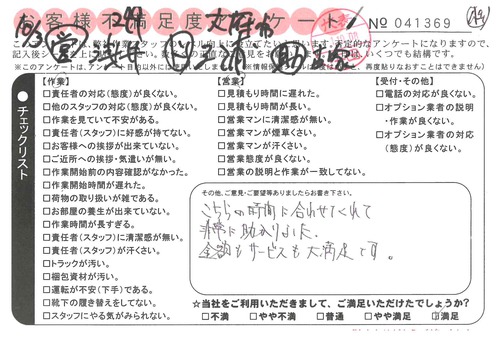 お客様不満足度アンケート
No 041369
(このアンケート用紙は、再度貼りなおすことはできません)
チェックリスト
【作業】
□責任者の対応(態度)が良くない。
□他のスタッフの対応(態度)が良くない。
□作業を見ていて不安がある。
□責任者(スタッフ)に好感が持てない。
□お客様への挨拶が出来ていない。
□ご近所への挨拶・気遣いが無い。
□作業開始前の内容確認がなかった。
□作業開始時間が遅れた。
□荷物の取り扱いが雑である。
□お部屋の養生が出来ていない。
□作業時間が長すぎる。
□責任者(スタッフ)に清潔感が無い。
□責任者(スタッフ)が汗くさい。
□トラックが汚い。
□梱包資材が汚い。
□運転が不安(下手)である。
□靴下の履き替えをしてない。
□スタッフにやる気がみられない。
【営業】
□見積もり時間に遅れた。
□見積もり時間が長い。
□営業マンに清潔感が無い。
□営業マンが煙草くさい。
□営業マンが汗くさい。
□営業態度が良くない。
□営業の説明と作業が一致してない。
【受付・その他】
□電話の対応が良くない。
□オプション業者の説明
・作業が良くない。
□オプション業者の対応
(態度)が良くない。
その他、ご意見・ご要望等ありましたらお書き下さい。
こちらの時間に合わせてくれて
非常に助かりました。
金額もサービスも大満足です。
☆当社をご利用いただきまして、ご満足いただけたでしょうか?
□不満 □やや不満 □普通 □やや満足 □満足